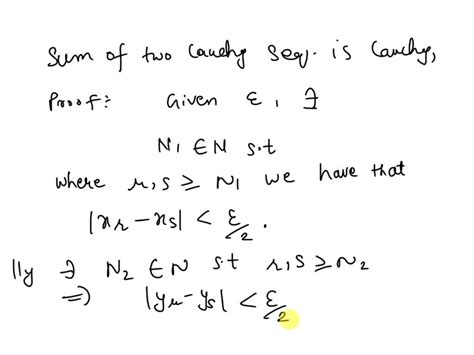 Sum of two Cauchy Seq. is Cauchy,
Proof: Given ε, ∃
N₁ ∈ N s.t
where r,s ≥ N₁ we have that
|xᵣ - xₛ| < ε/2.
||ly ∃ N₂ ∈ N s.t r,s ≥ N₂
⇒) |yᵣ - yₛ| < ε/2